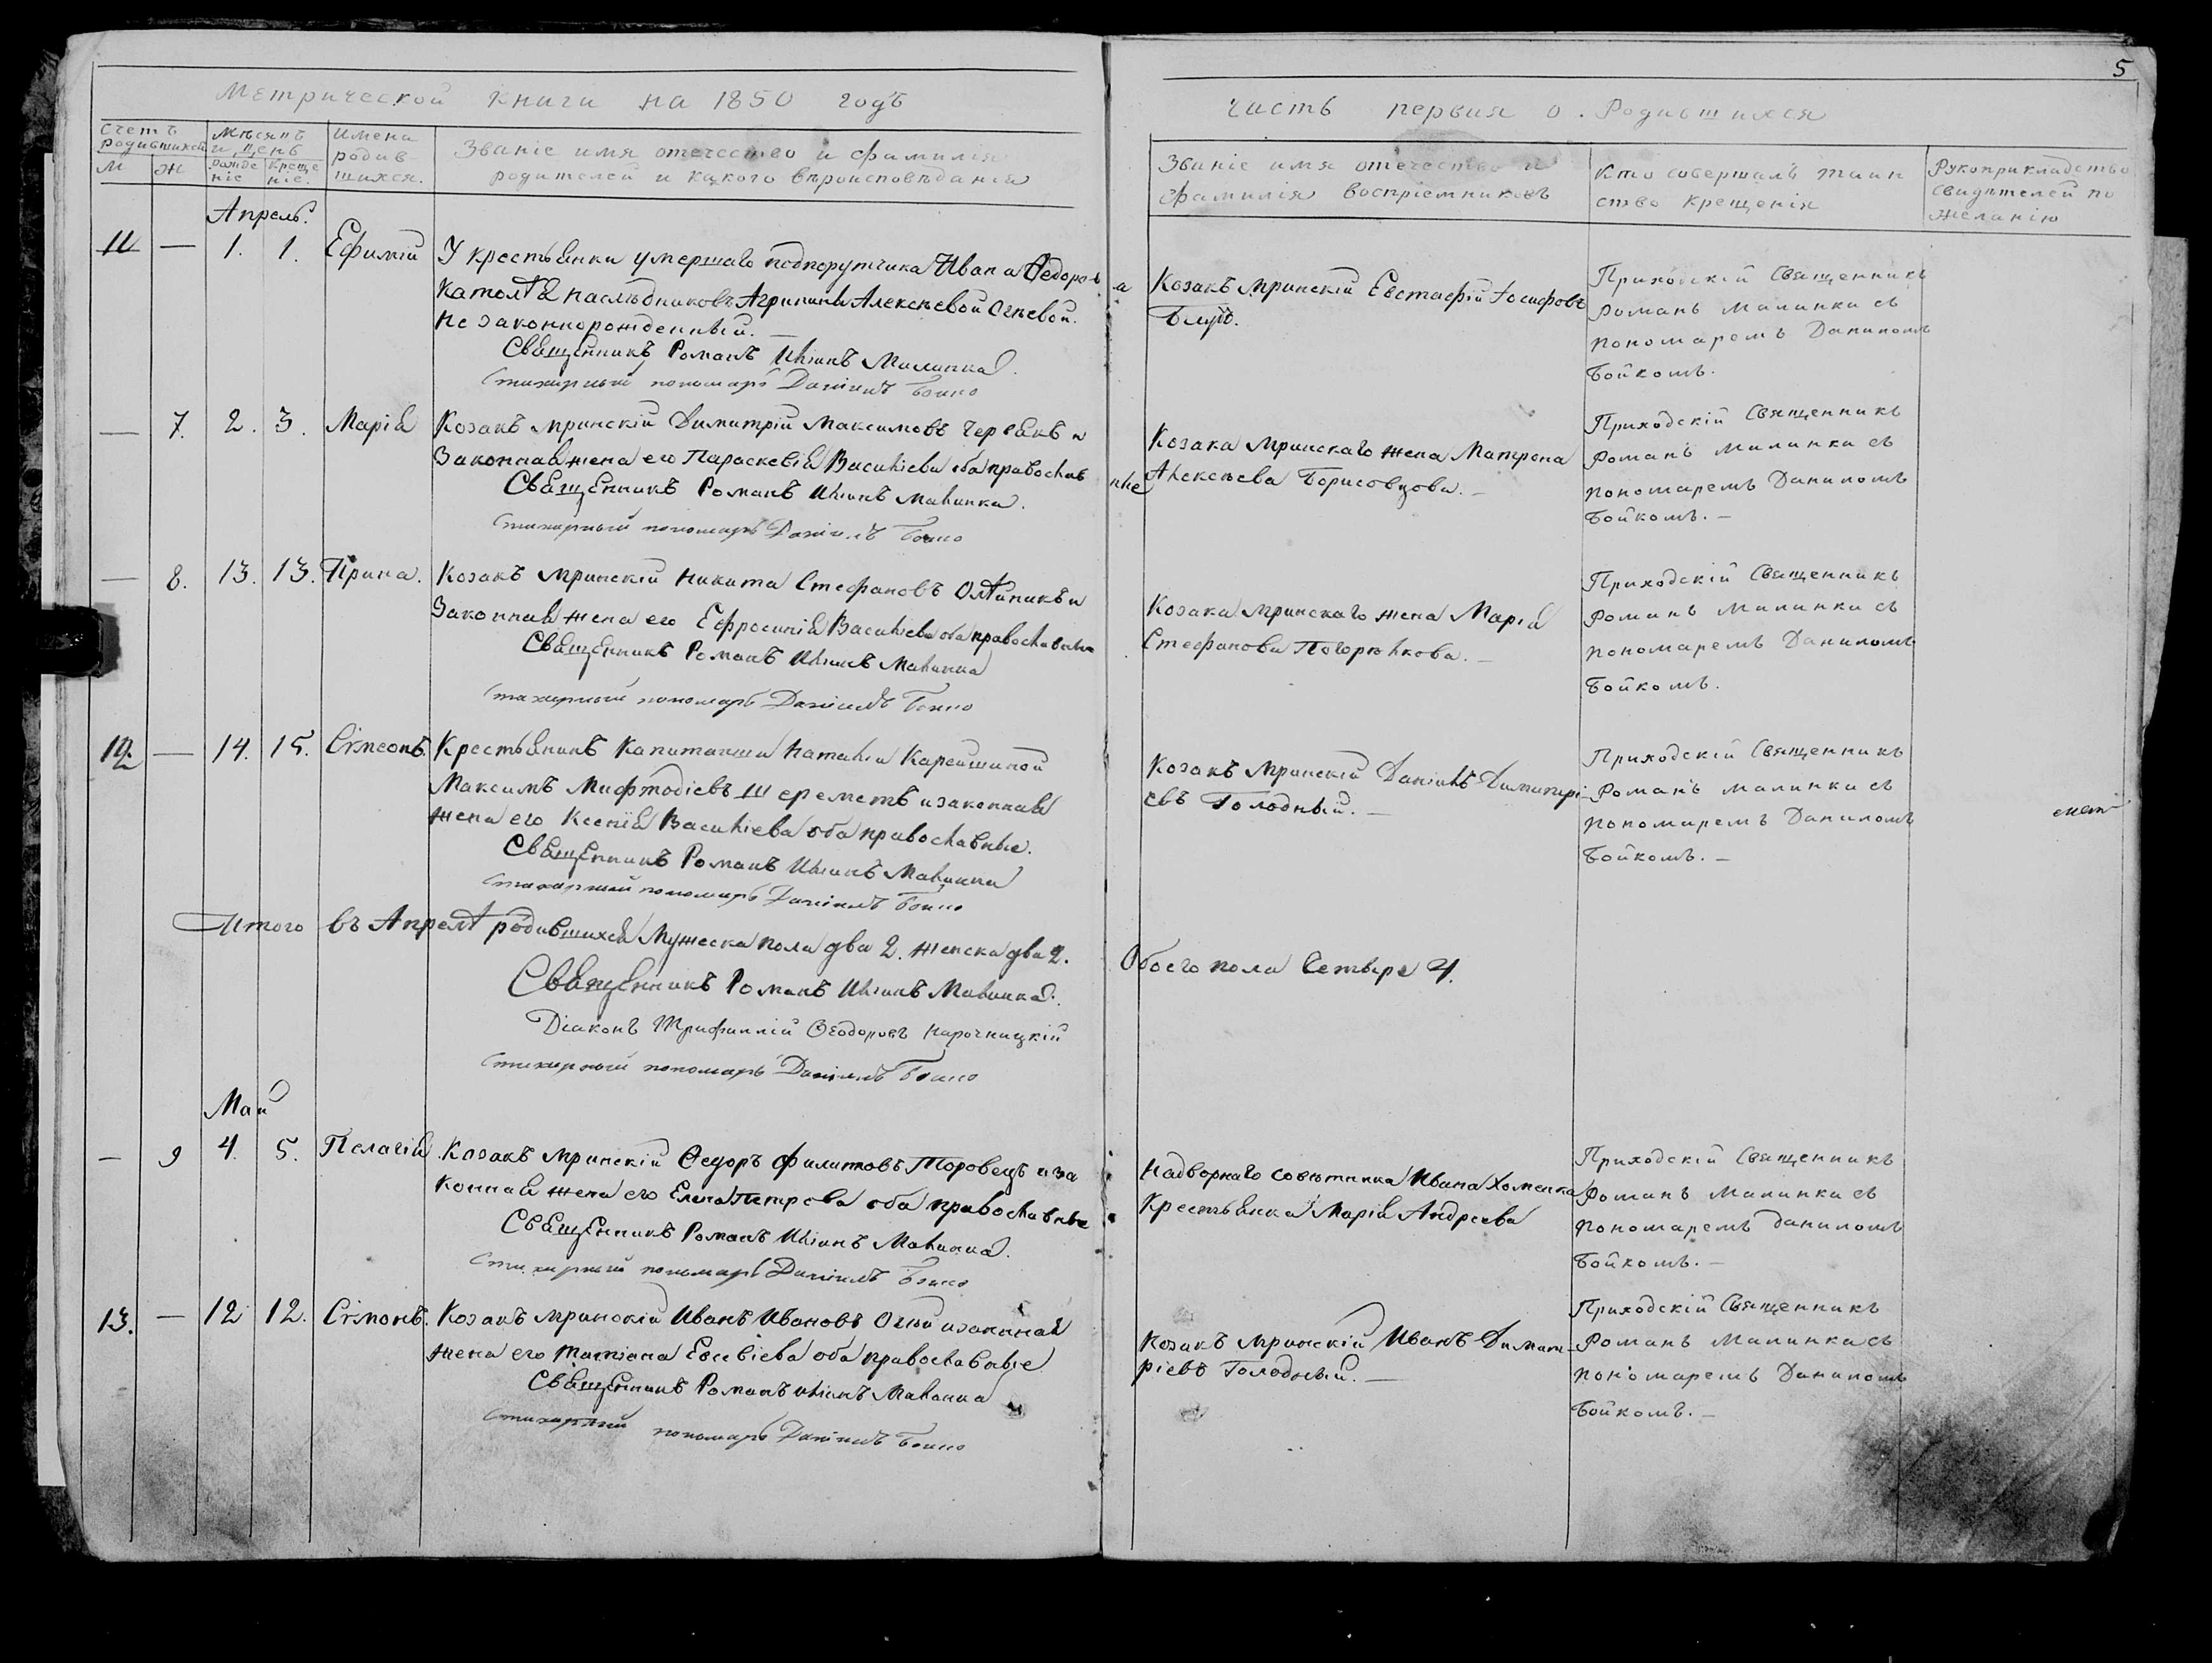 5
Метрической книги на 1850 годъ
Часть первия о. Родившихся
Счетъ родившихся
М Ж
Мѣсяцъ и день
рожденіе крещеніе.
Имена родившихся.
Званіе имя отечество и фамилія
родителей и какого вѣроисповѣданія
Званіе имя отечество и
фамилія воспріемниковъ
Кто совершалъ таин
ство крещенія
Рукоприкладство
свидѣтелей по
желанію
Апрель.
11 — 1. 1. Ефимій У крестьянки умершаго подпорутчика Ивана Ѳедоров а
Наслѣдниковъ Агрипины Алексѣевой
Незаконнорожденный.
Священникъ Романъ Иліинъ Малинка.
Стихарный пономаръ Даніилъ Бойко
Козакъ Мринскій Евстафій Іосифовъ
Приходскій Священникъ
Романъ Малинка съ
пономаремъ Даниломъ
Бойкомъ.
— 7. 2. 3. Марія Козакъ Мринскій Димитрій Максимовъ Червякъ и
Законная жена его Параскевія Василіева оба православ ные
Священникъ Романъ Иліинъ Малинка.
Стихарный пономаръ Даніилъ Бойко
Козака Мринскаго жена Матрона
Алексѣева Борисовцова. —
Приходскій Священникъ
Романъ Малинка съ
пономаремъ Даниломъ
Бойкомъ. —
— 8. 13. 13. Ирина. Козакъ Мринскій Никита Стефановъ Олѣйникъ и
Законная жена его Ефросинія Василіева оба православные
Священникъ Романъ Иліинъ Малинка
Стихарный пономаръ Даніилъ Бойко
Козака Мринскаго жена Марія
Стефанова Погорѣлкова. —
Приходскій Священникъ
Романъ Малинка съ
пономаремъ Даниломъ
Бойкомъ.
12. — 14. 15. Сімеонъ. Крестьянинъ Капитанши Наталіи Карейшиной
Максимъ Мифтодіевъ Шереметъ и законная
жена его Ксенія Василіева оба православные.
Священникъ Романъ Иліинъ Малинка
Стихарный пономаръ Даніилъ Бойко
Козакъ Мринскій Даніилъ Димитрі
евъ Голодный. —
Приходскій Священникъ
Романъ Малинка съ
пономаремъ Даниломъ
Бойкомъ. —
Итого въ Апрелѣ родившихся Мужеска пола два 2. женска два 2.
Обоего пола Четыре 4.
Священникъ Романъ Иліинъ Малинка.
Діаконъ Трифиллій Ѳеодоровъ Нарочницкій
Стихарный пономаръ Даніилъ Бойко
Май
— 9 4. 5. Пелагія. Козакъ Мринскій Ѳедоръ Филитовъ Торовецъ и за
конная жена его Елена Петрова оба православные
Священникъ Романъ Иліинъ Малинка.
Стихарный пономаръ Даніилъ Бойко
Надворнаго совѣтника Ивана Хоменка
Крестьянка Марія Андреева
Приходскій Священникъ
Романъ Малинка съ
пономаремъ Даниломъ
Бойкомъ. —
13. — 12 12. Сімонъ. Козакъ Мринскій Иванъ Ивановъ Огній и законная
жена его Татіана Евсевіева оба православные
Священникъ Романъ Иліинъ Малинка
Стихарный пономаръ Даніилъ Бойко
Козакъ Мринскій Иванъ Димит-
ріевъ Голодный. —
Приходскій Священникъ
Романъ Малинка съ
пономаремъ Даниломъ
Бойкомъ. —